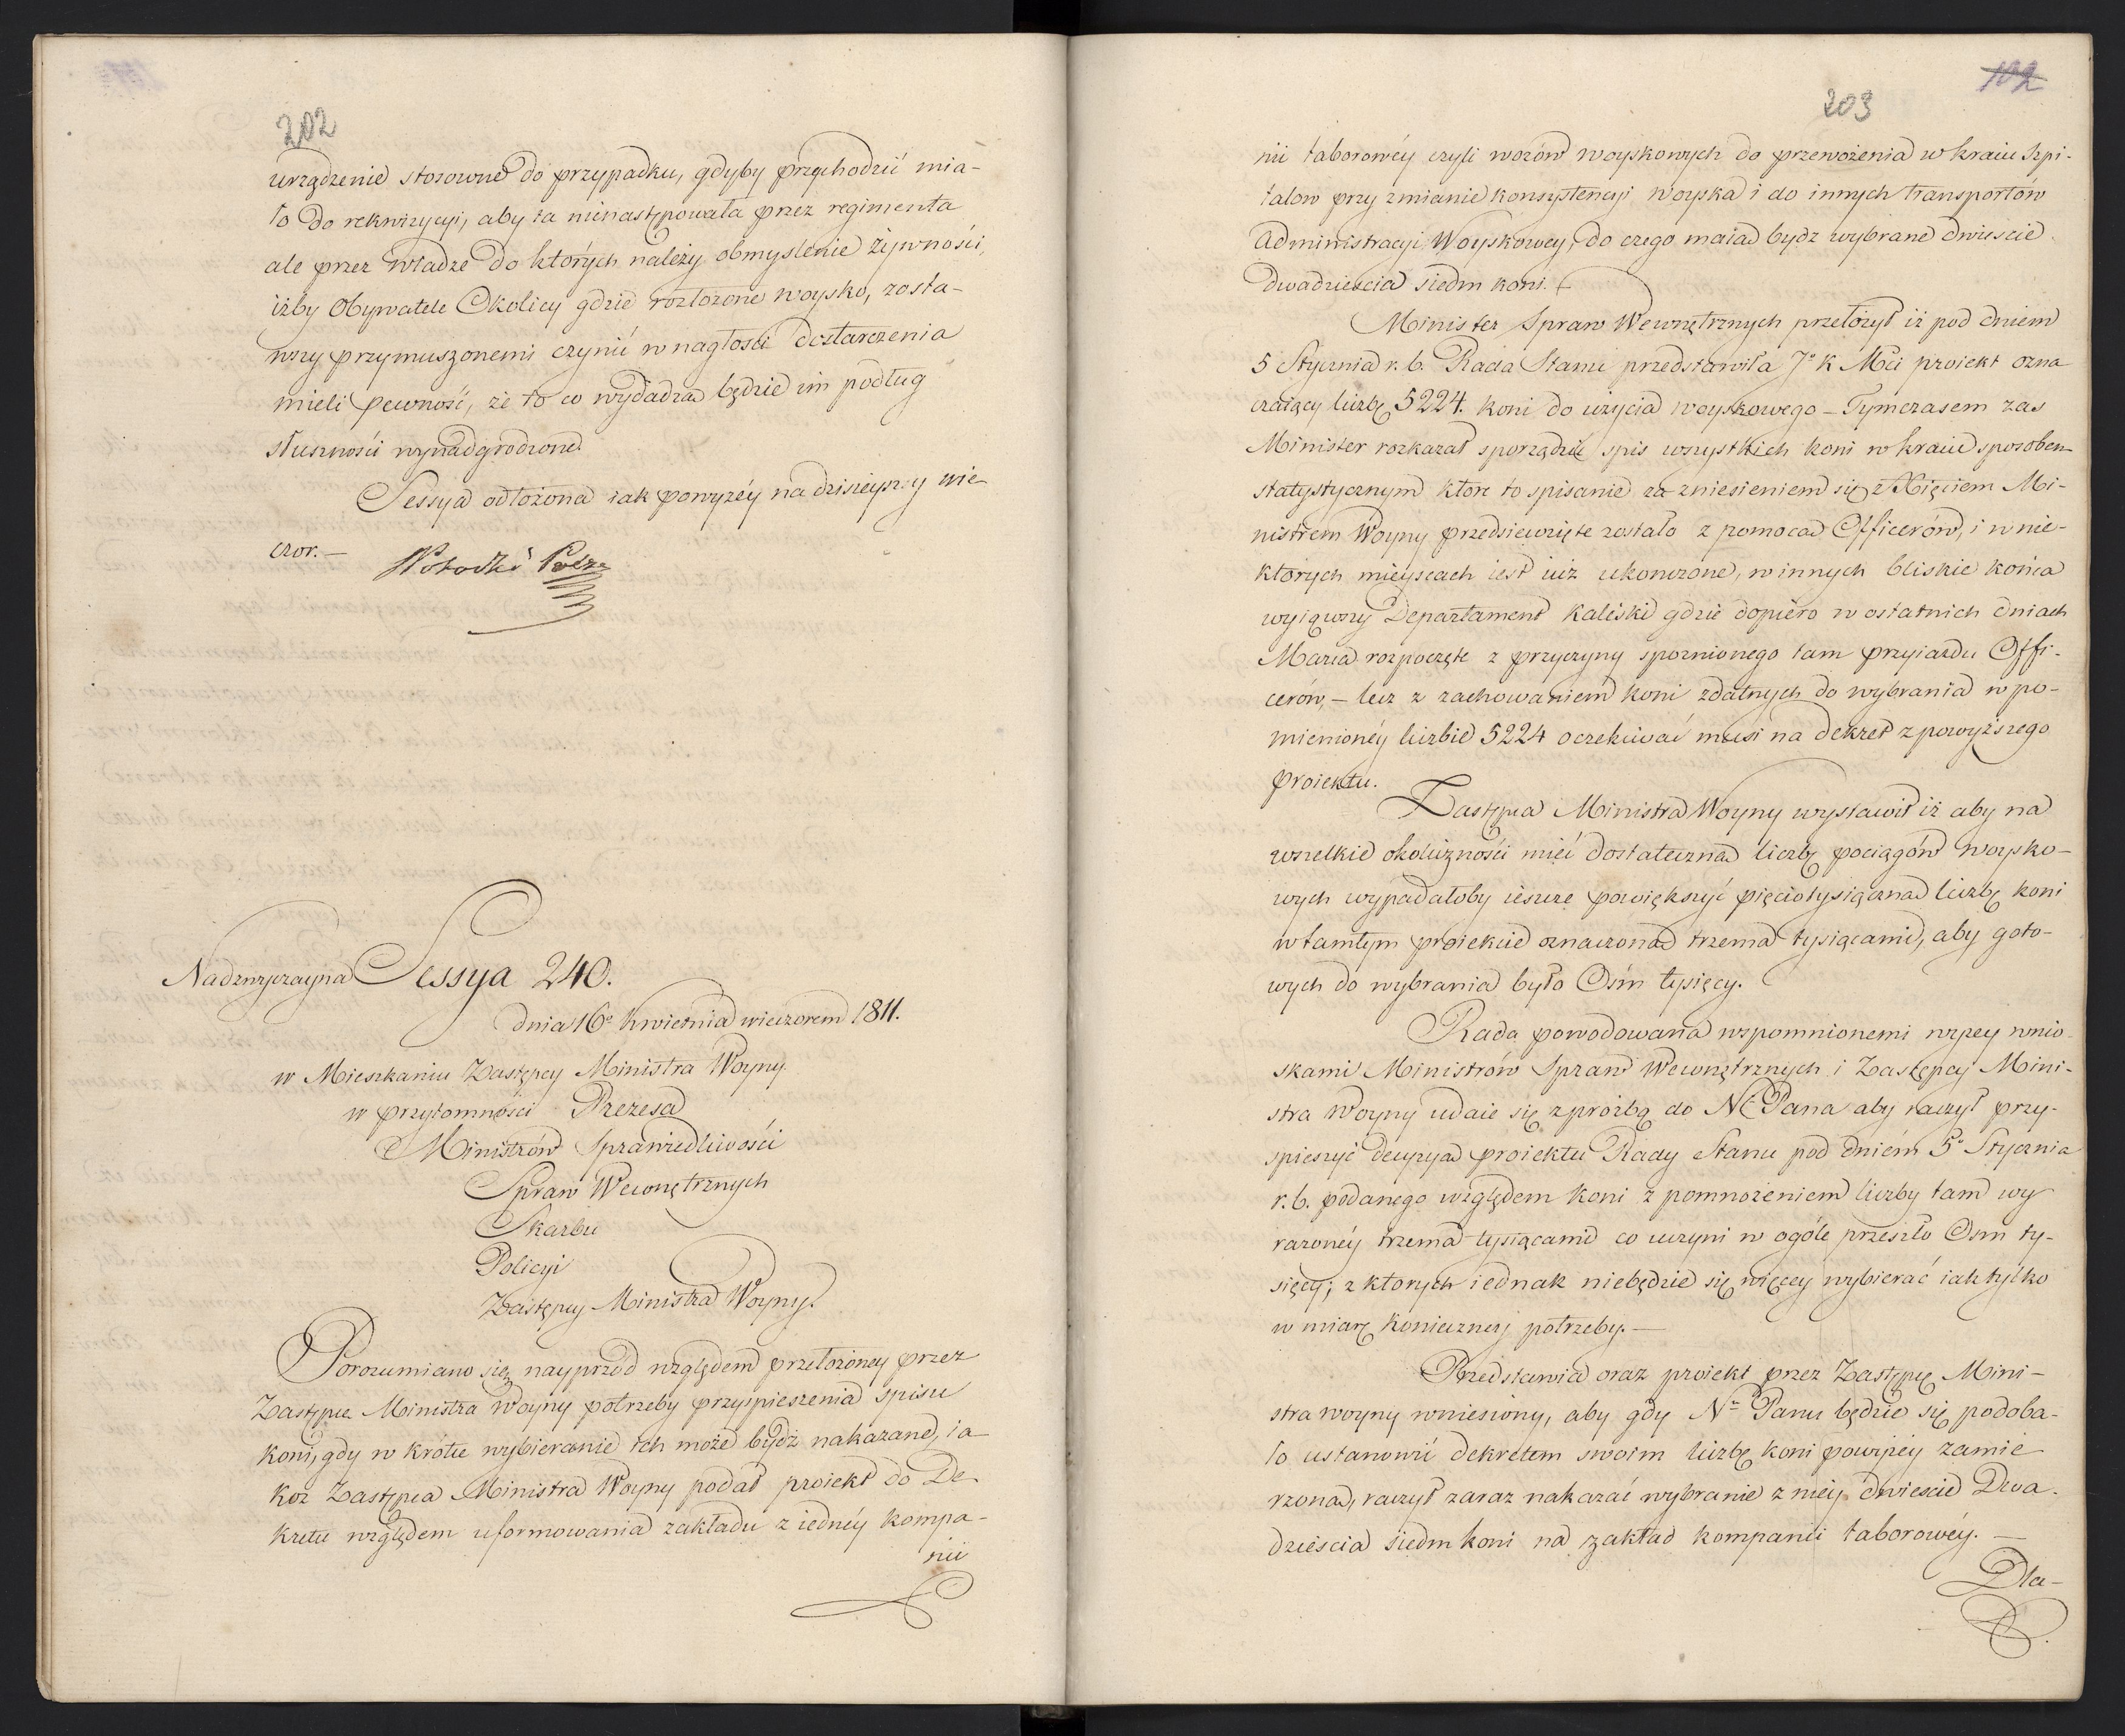 202
urządzenie stosowne do przypadku, gdyby przychodzić mia-
ło do rekwizycyi, aby ta nienastępowała przez regimenta
ale przez władze do których należy obmyslenie żywności,
iżby Obywatele Okolicy gdzie rozłożone woysko, zosta-
wszy przymuszonemi czynić w nagłości dostarczenia
mieli pewność, że to co wydadzą będzie im podług
słuszności wynadgrodzone.
Sessya odłożona iak powyżéy na dzisieyszy wie-
czor. —
Potocki Prezes
Nadzwyczayna Sessya 240.
dnia 16º kwietnia wieczorem 1811.
w Mieszkaniu Zastępcy Ministra Woyny
w przytomności Prezesa
Ministrów Sprawiedliwości
Spraw Wewnętrznych
Skarbu
Policyi
Zastępcy Ministra Woyny.
Porozumiano się nayprzód względem przełożoney przez
Zastępcę Ministra Woyny potrzeby przyspieszenia spisu
koni, gdy w krótce wybieranie ich może bydź nakazane, ia-
koż Zastępca Ministra Woyny podał proiekt do De-
kretu względem uformowania zakładu z iednéy kompa-
nii
102
203
nii taborowéy czyli wozów woyskowych do przewożenia w kraiu Szpi-
talow przy zmianie konsystencyi woyska i do innych transportów
Administracyi Woyskowey, do czego maią bydz wybrane dwieście
dwadzieścia siedm koni. —
Minister Spraw Wewnętrznych przełożył iż pod dniem
5 Stycznia r. b. Rada Stanu przedstawiła Jº K Mci proiekt ozna
czaiący liczbę 5224. koni do użycia woyskowego — Tymczasem zas
Minister rozkazał sporządzić spis wszystkich koni w kraiu sposobem
statystycznym które to spisanie za zniesieniem się z Xięciem Mi-
nistrem Woyny przedsięwzięte zostało z pomocą Officerów, i w nie-
których mieyscach iest iuż ukonczone, w innych bliskie końca
wyiąwszy Departament kaliski gdzie dopiero w ostatnich dniach
Marca rozpoczęte z przyczyny spoznionego tam przyiazdu Offi-
cerów, — lecz z zachowaniem koni zdatnych do wybrania w po-
mienionéy liczbie 5224 oczekiwać musi na dekret z powyższego
proiektu.
Zastępca Ministra Woyny wystawił iż aby na
wszelkie okoliczności mieć dostateczną liczbę pociągów woysko-
wych wypadałoby ieszcze powiększyć pięciotysiączną liczbę koni
w tamtym proiekcie oznaczoną trzema tysiącami, aby goto-
wych do wybrania było Ośm tysięcy.
Rada powodowana wspomnionemi wyżey wnio-
skami Ministrów Spraw Wewnętrznych i Zastępcy Mini-
stra Woyny udaie się z prożbą do NPana aby raczył przy-
spieszyć decyzyą proiektu Rady Stanu pod dniém 5º Stycznia
r. b. podanego względem koni z pomnożeniem liczby tam wy
rażonéy trzema tysiącami co uczyni w ogóle przeszło Osm ty-
sięcy; z ktorych iednak niebędzie się więcey wybierać iak tylko
w miarę konieczney potrzeby. —
Przedstawia oraz proiekt przez Zastępcę Mini-
stra woyny wniesiony, aby gdy Nº Panu będzie się podoba-
ło ustanowić dekretem swoim liczbę koni powyżéy zamie
rzoną, raczył zaraz nakazać wybranie z niéy dwieście Dwa-
dzieścia siedm koni na zakład kompanii taborowéy. —
Dla-